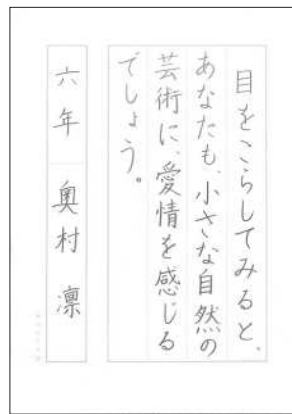 目をこらしてみると、
あなたも、小さな自然の
芸術に、愛情を感じる
でしょう。
六年 奥村 凛